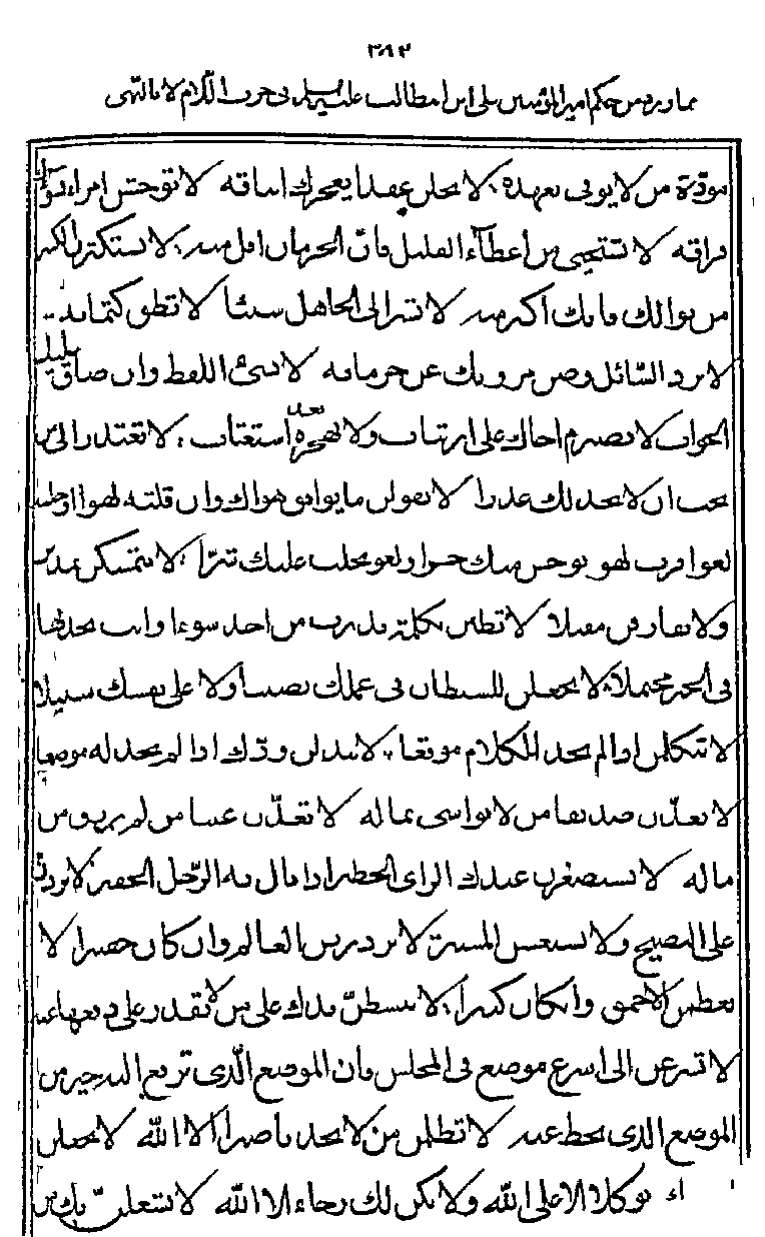 ٣٨٢
مما ورد من حكم امير المؤمنين علي ابن ابيطالب عليه السلم في حرف اللام لا بالنهي
مودّة من لا يوفي بعهده، لا تحلن عقدا يعجزك ايثاقه لا توحش امراء يسؤك
فراقه لا تستحيي من اعطآء القليل فانّ الحرمان اقل منه، لا تستكثرن الكثير
من نوالك فانك اكثر منه لا تسر الى الجاهل شيئا لا تطيق كتمانه
لا ترد السّائل وصن مروتك عن حرمانه لا تسئ اللفظ وان ضاق عليك
الجواب لا تصرم اخاك على ارتياب ولا تهجره بعد استعتاب، لا تعتذر الى من
يحب ان لا يجد لك عذرا لا تقولن ما يوافق هواك وان قلته لهوا او خلته
لغوا فرب لهو يوحش منك حرا ولغو يجلب عليك شرّا، لا تتمسكن بمدبر
ولا تفارقن مقبلا لا تظنن بكلمة بدرت من احد سوءا وانت تجد لها
في الخير محتملا، لا تجعلن للشيطان في عملك نصيبا ولا على نفسك سبيلا
لا تتكلمن اذا لم تجد للكلام موقعا، لا تبذلن ودّك اذا لم تجد له موضعا
لا تعدّن صديقا من لا يواسي بماله لا تعدّن غنيا من لم يرزق من
ماله لا تستصغرن عندك الراى الخطير اذا قال به الرّجل الحقير لا تردن
على النصيح ولا تستغشن المشير لا تزدرين العالم وان كان حقيرا لا
تعظمن الاحمق وان كان كبيرا، لا تبسطنّ يدك على من لا تقدر على دفعها عنه
لا تسرعن الى اسرع موضع في المجلس فان الموضع الّذى ترفع اليه خير من
الموضع الذى تحط عنه لا تطلمن من لا يجد ناصرا الا الله لا تجعلن
توكلا الا على الله ولا يكن لك رجاء الا الله لا تشتغلنّ بك من